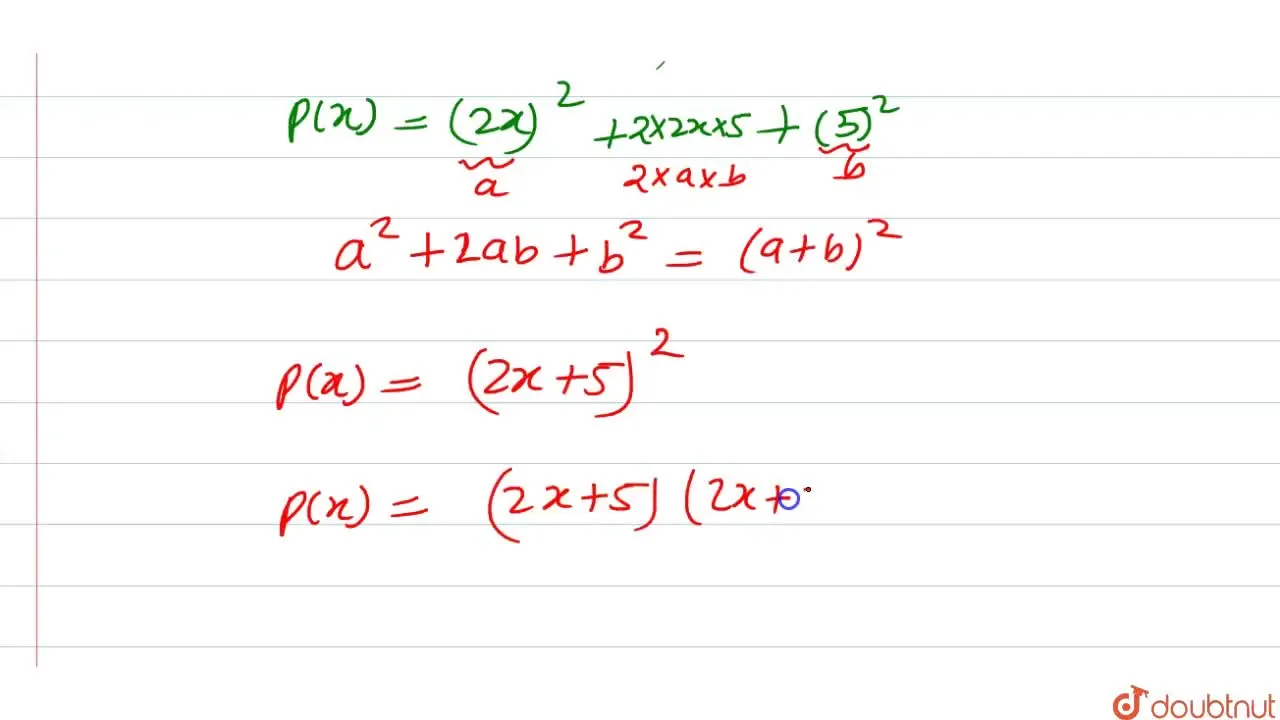 P(x) = (2x)² + 2×2x×5 + (5)²
a 2×a×b b
a² + 2ab + b² = (a+b)²
P(x) = (2x+5)²
P(x) = (2x+5) (2x+
doubtnut